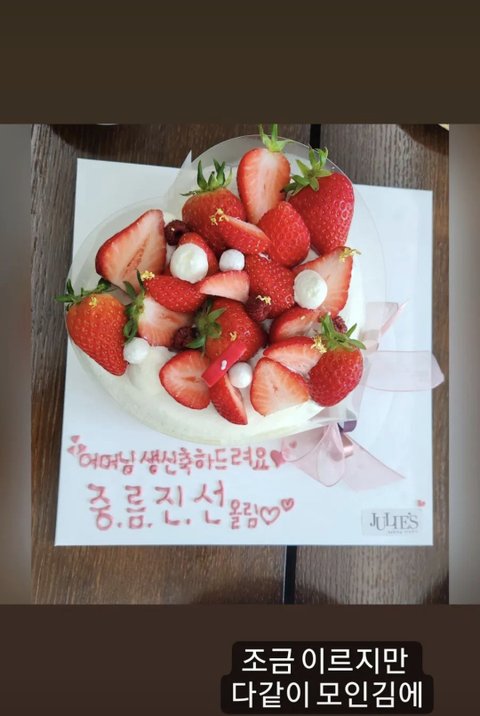 어머님 생신축하드려요
중.름.진.선 올림
JULIE'S
조금 이르지만
다같이 모인김에